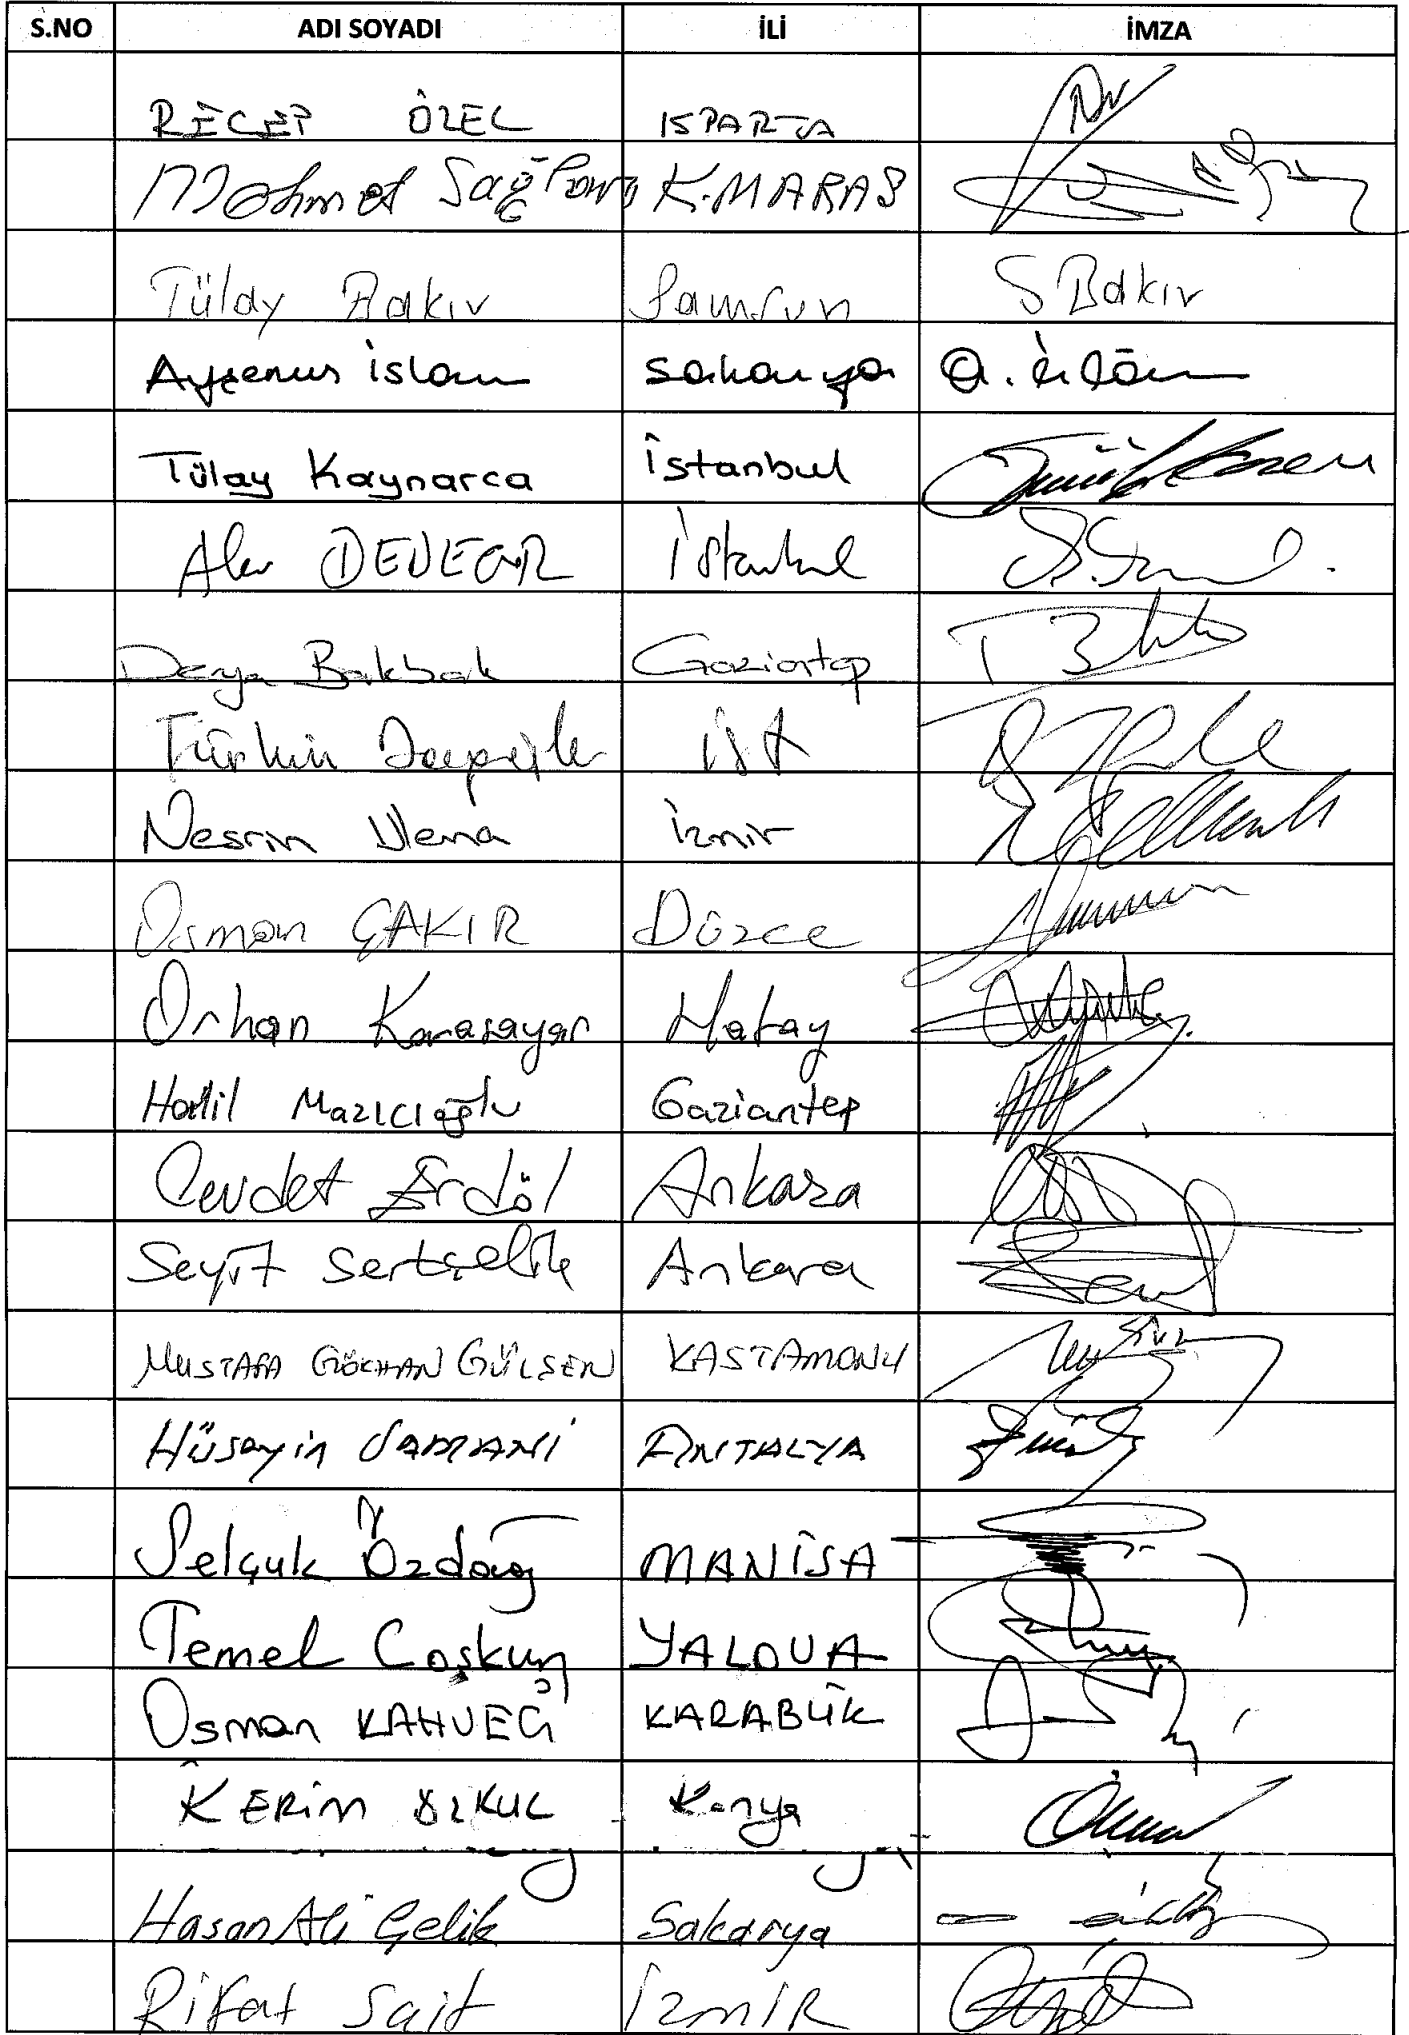 S.NO ADI SOYADI İLİ İMZA
RECEP ÖZEL ISPARTA
Mehmet Sağlam K.MARAŞ
Tülay Bakır Samsun S Bakır
Ayşenur islam Sakarya
Tülay Kaynarca İstanbul
Alev DEDEGİL İstanbul
Derya Bakbak Gaziantep
Türkan Dağoğlu İST
Nesrin Ulema İzmir
Osman ÇAKIR Düzce
Orhan Karasayar Hatay
Halil Mazıcıoğlu Gaziantep
Cevdet Erdöl Ankara
Seyit Sertçelik Ankara
MUSTAFA GÖKHAN GÜLŞEN KASTAMONU
Hüseyin SAMANİ ANTALYA
Selçuk Özdağ MANİSA
Temel Coşkun YALOVA
Osman KAHVECİ KARABÜK
KERİM ÖZKUL Konya
Hasan Ali Çelik Sakarya
Rifat Sait İzmİR